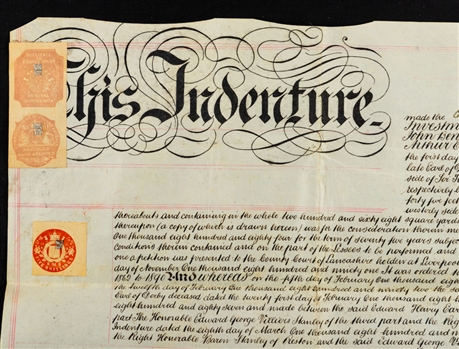 This Indenture
made the
Investm
John Ben
Arthur E
the first day
late Earl of
side of
respectively
forty five feet
westerly side
thereabouts and containing in the whole two hundred and sixty eight square yards
thereupon (a copy of which is drawn hereon) was for the consideration therein me
One thousand eight hundred and eighty four for the term of seventy five years subject
conditions therein contained and on the part of the Lessees to be performed and
one a petition was presented to the County Court of Lancashire holden at Liverpool
day of November One thousand eight hundred and ninety one It was ordered
to 1890 And Whereas on the fifth day of February One thousand eight
the twelfth day of February One thousand eight hundred and ninety two the
Earl of Derby deceased dated the twenty first day of February One thousand eight
eight hundred and eighty seven and made between the said Edward Henry Earl
part The Honorable Edward George Villiers Stanley of the third part and the Right
Indenture dated the eighth day of March One thousand eight hundred and
the Right Honorable Baron Stanley of Preston and the said Edward George